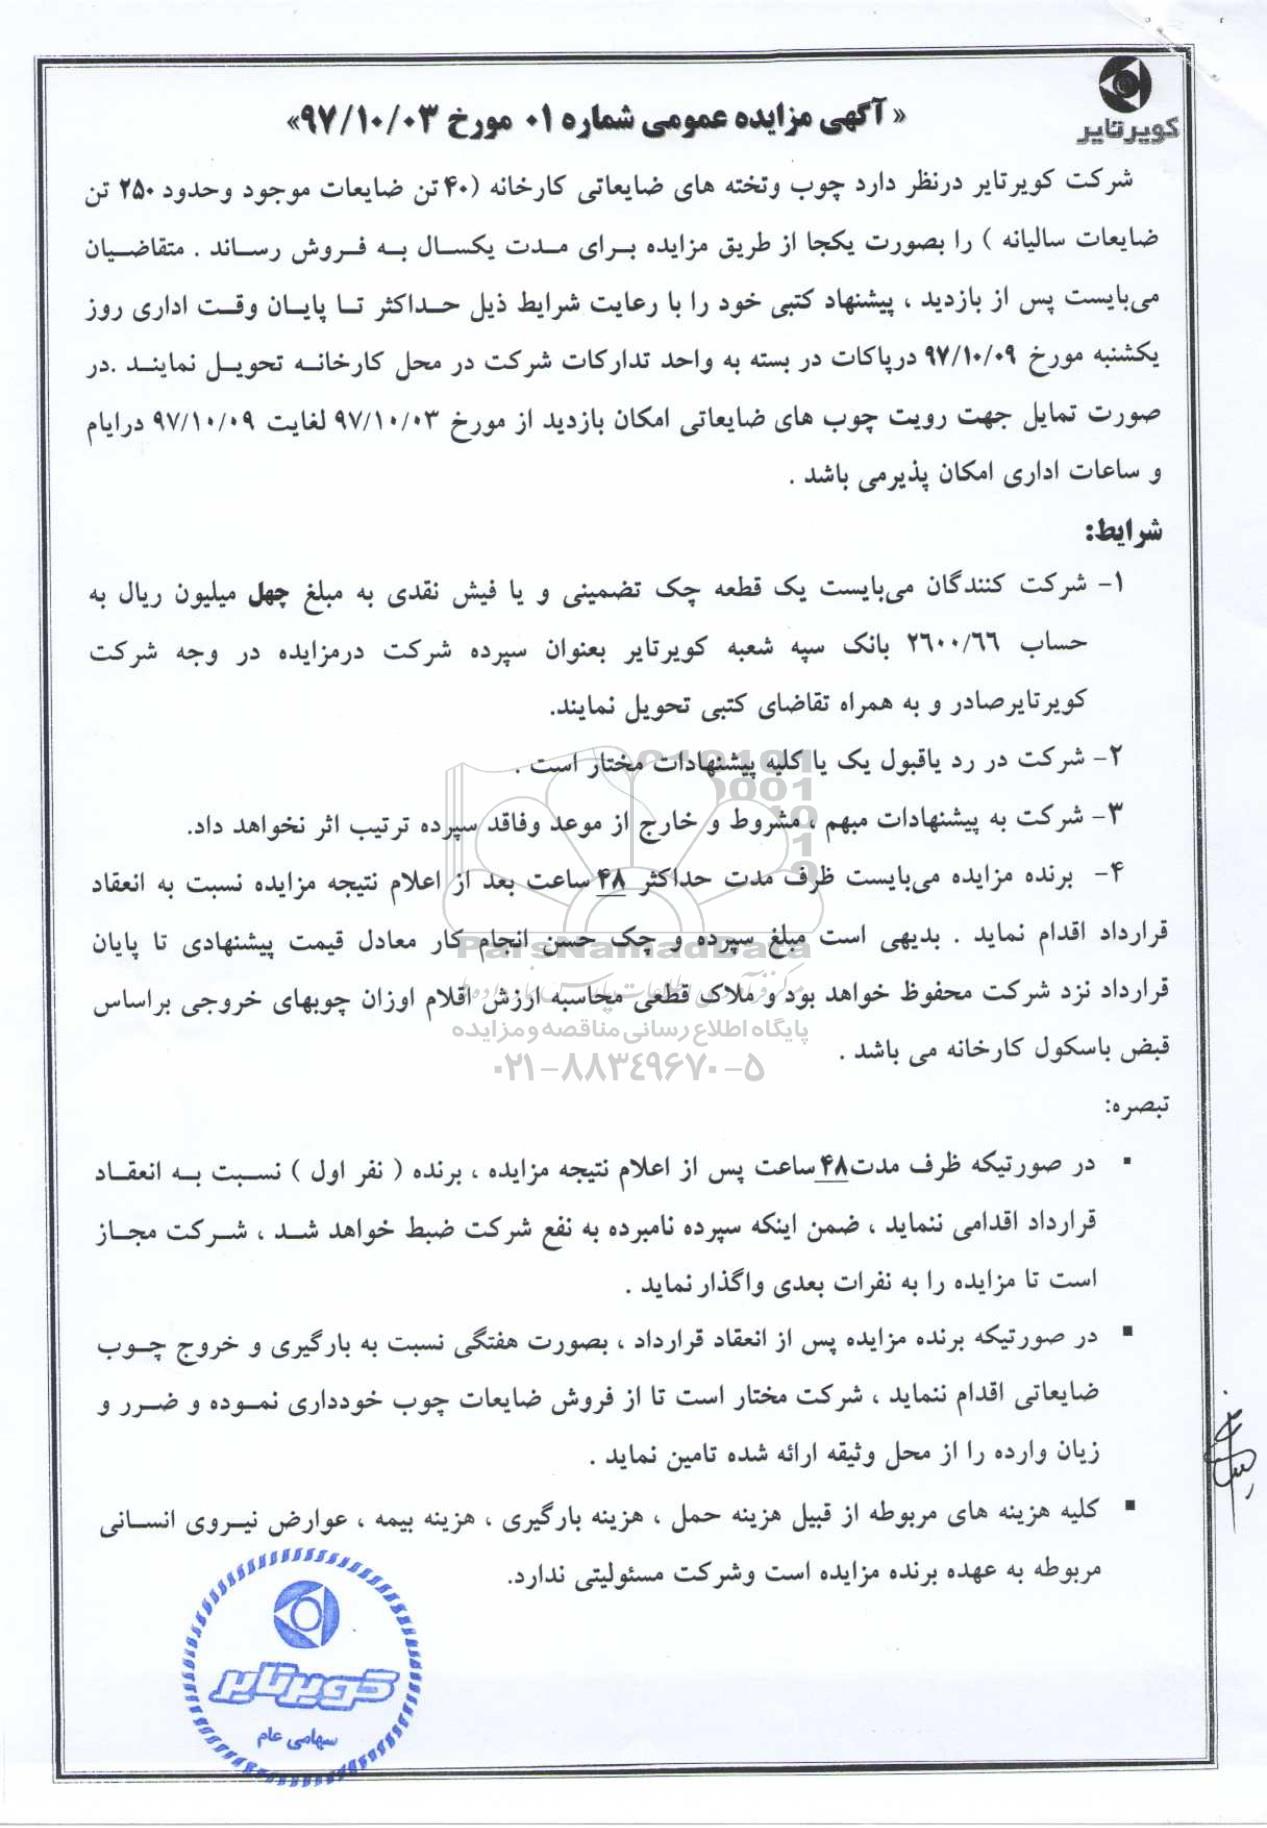 کویرتایر
« آگهی مزایده عمومی شماره ۰۱ مورخ ۹۷/۱۰/۰۳»
شرکت کویرتایر درنظر دارد چوب وتخته های ضایعاتی کارخانه (۴۰ تن ضایعات موجود وحدود ۲۵۰ تن
ضایعات سالیانه ) را بصورت یکجا از طریق مزایده برای مدت یکسال به فروش رساند . متقاضیان
می‌بایست پس از بازدید ، پیشنهاد کتبی خود را با رعایت شرایط ذیل حداکثر تا پایان وقت اداری روز
یکشنبه مورخ ۹۷/۱۰/۰۹ درپاکات در بسته به واحد تدارکات شرکت در محل کارخانه تحویل نمایند .در
صورت تمایل جهت رویت چوب های ضایعاتی امکان بازدید از مورخ ۹۷/۱۰/۰۳ لغایت ۹۷/۱۰/۰۹ درایام
و ساعات اداری امکان پذیرمی باشد .
شرایط:
۱- شرکت کنندگان می‌بایست یک قطعه چک تضمینی و یا فیش نقدی به مبلغ چهل میلیون ریال به
حساب ۲۶۰۰/۶۶ بانک سپه شعبه کویرتایر بعنوان سپرده شرکت درمزایده در وجه شرکت
کویرتایرصادر و به همراه تقاضای کتبی تحویل نمایند.
۲- شرکت در رد یاقبول یک یا کلیه پیشنهادات مختار است .
۳- شرکت به پیشنهادات مبهم ، مشروط و خارج از موعد وفاقد سپرده ترتیب اثر نخواهد داد.
۴- برنده مزایده می‌بایست ظرف مدت حداکثر ۴۸ ساعت بعد از اعلام نتیجه مزایده نسبت به انعقاد
قرارداد اقدام نماید . بدیهی است مبلغ سپرده و چک حسن انجام کار معادل قیمت پیشنهادی تا پایان
ParsNamadData
قرارداد نزد شرکت محفوظ خواهد بود و ملاک قطعی محاسبه ارزش اقلام اوزان چوبهای خروجی براساس
پایگاه اطلاع رسانی مناقصه و مزایده
قبض باسکول کارخانه می باشد .
۰۲۱-۸۸۳۴۹۶۷۰-۵
تبصره:
▪ در صورتیکه ظرف مدت۴۸ساعت پس از اعلام نتیجه مزایده ، برنده ( نفر اول ) نسبت به انعقاد
قرارداد اقدامی ننماید ، ضمن اینکه سپرده نامبرده به نفع شرکت ضبط خواهد شد ، شرکت مجاز
است تا مزایده را به نفرات بعدی واگذار نماید .
▪ در صورتیکه برنده مزایده پس از انعقاد قرارداد ، بصورت هفتگی نسبت به بارگیری و خروج چوب
ضایعاتی اقدام ننماید ، شرکت مختار است تا از فروش ضایعات چوب خودداری نموده و ضرر و
زیان وارده را از محل وثیقه ارائه شده تامین نماید .
▪ کلیه هزینه های مربوطه از قبیل هزینه حمل ، هزینه بارگیری ، هزینه بیمه ، عوارض نیروی انسانی
مربوطه به عهده برنده مزایده است وشرکت مسئولیتی ندارد.
کویرتایر
سهامی عام